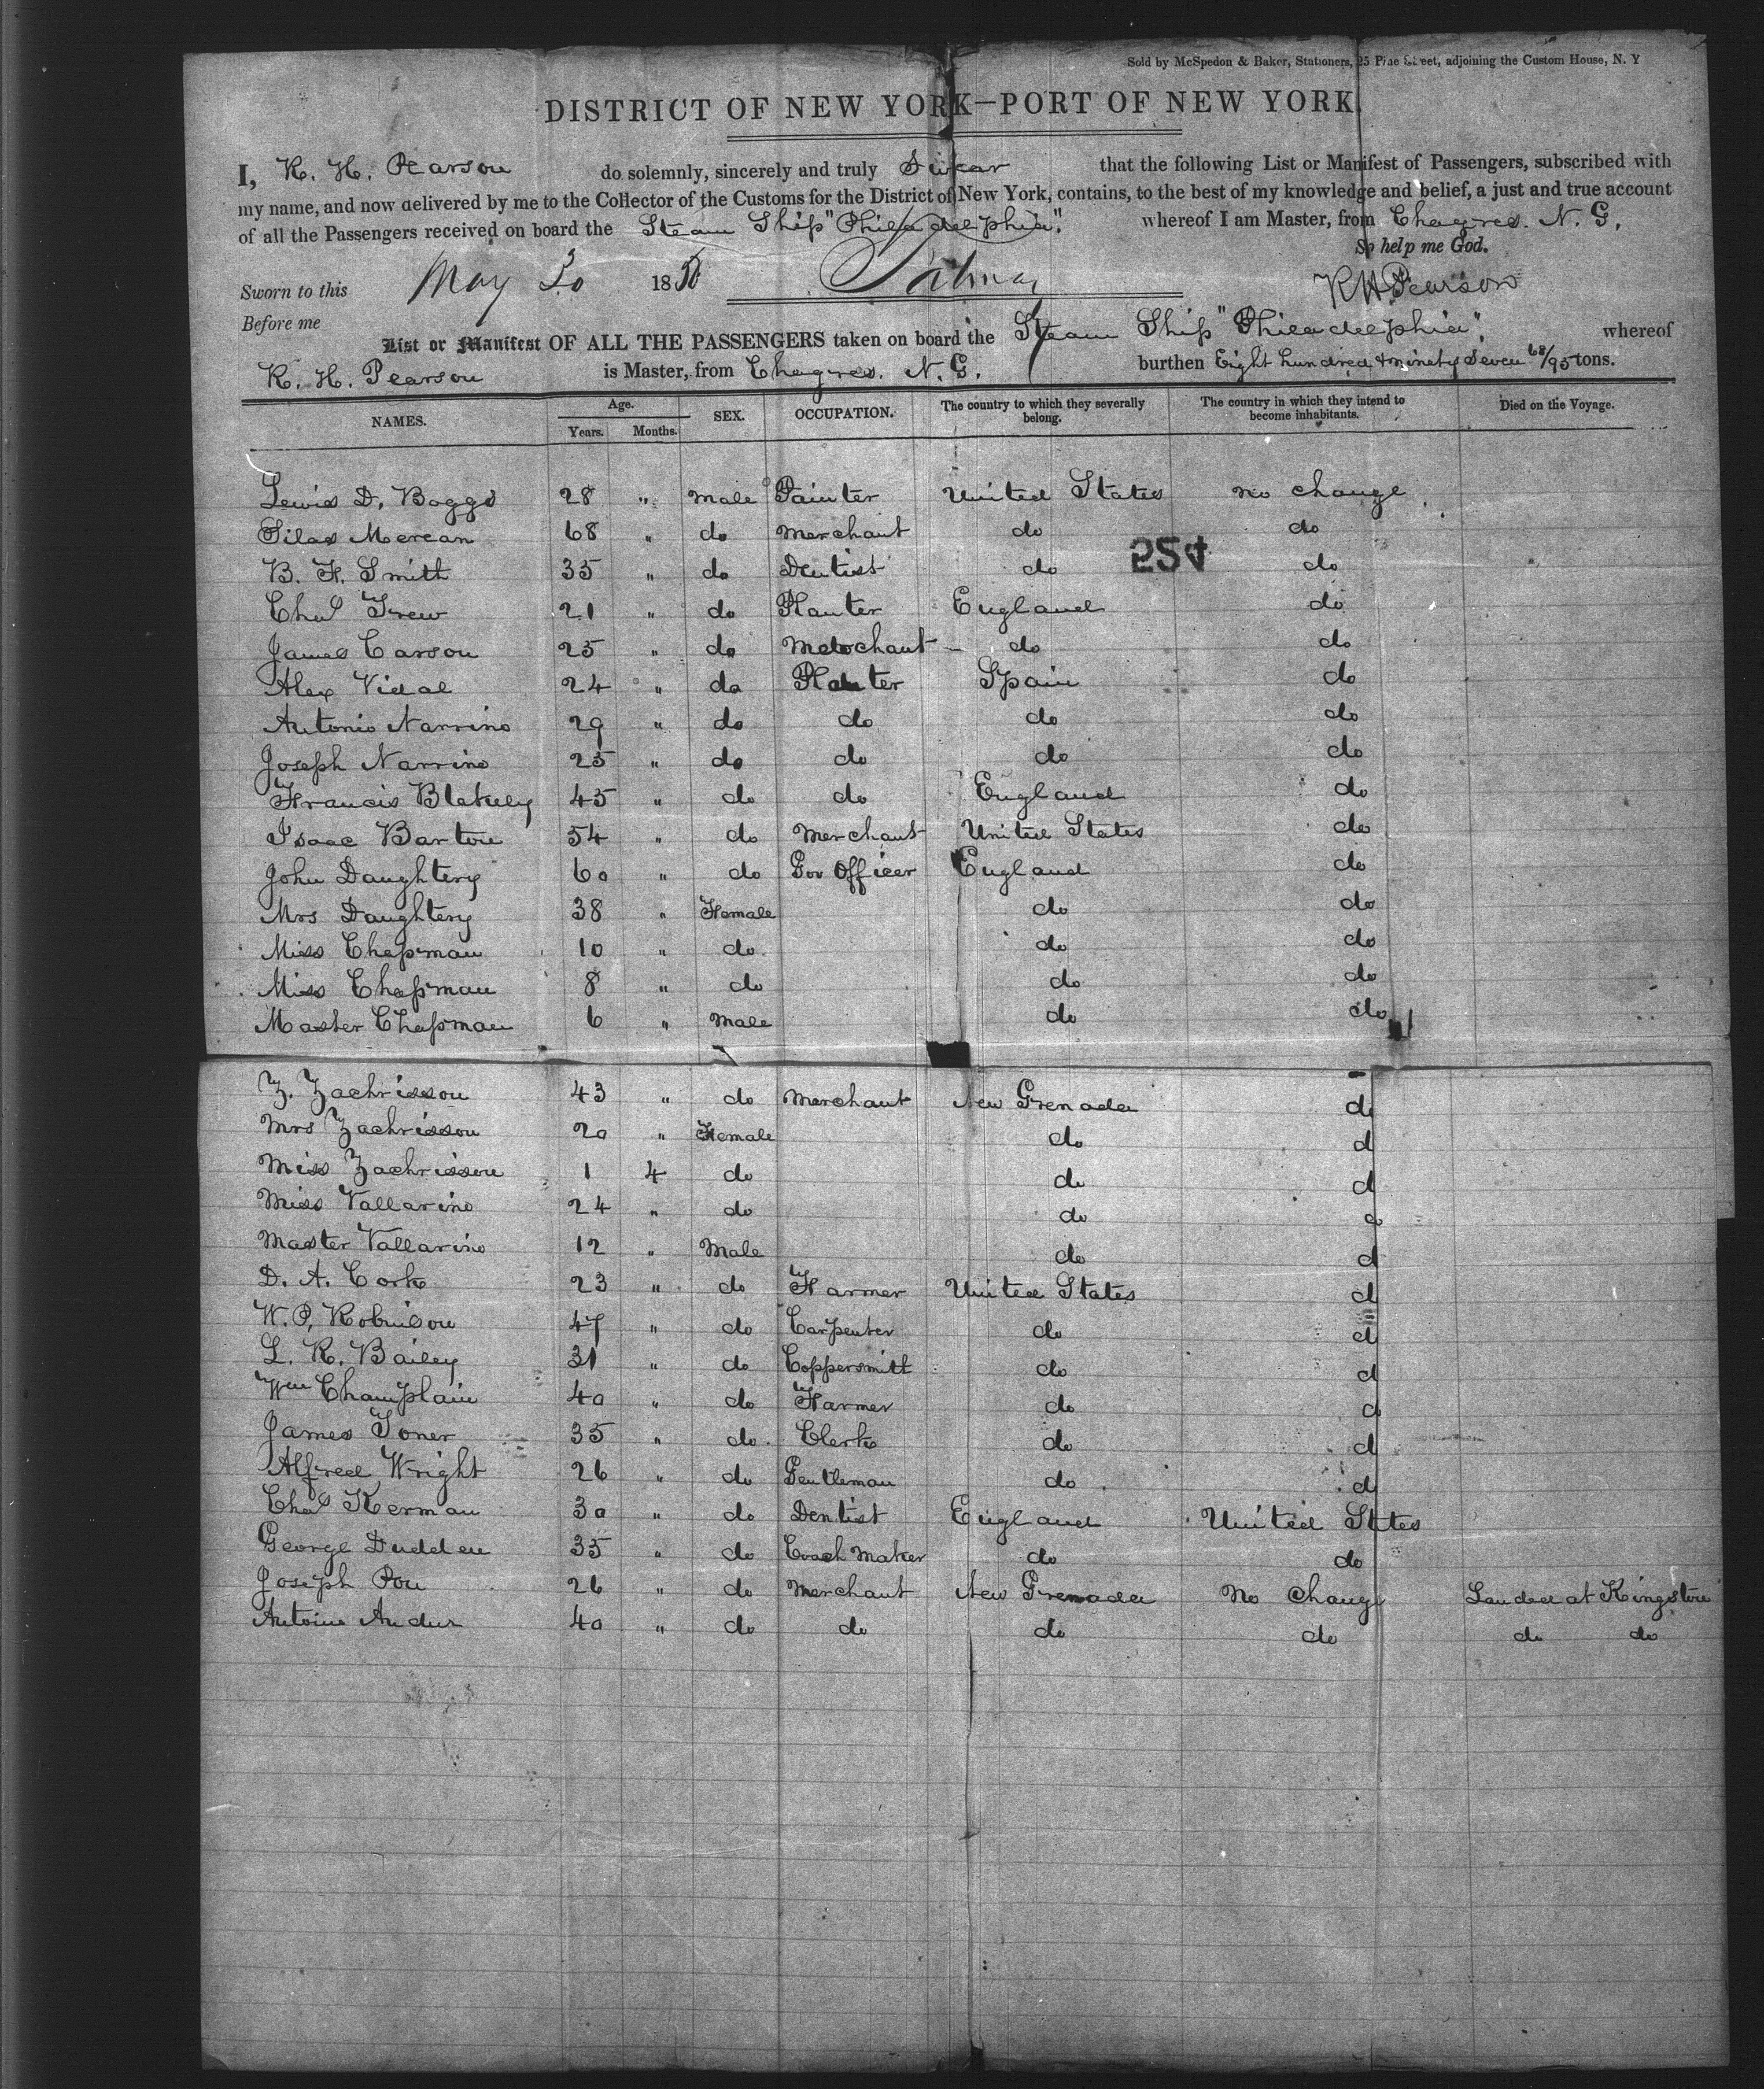 Sold by McSpedon & Baker, Stationers, 25 Pine Street, adjoining the Custom House, N. Y
DISTRICT OF NEW YORK—PORT OF NEW YORK.
I, R. H. Pearson do solemnly, sincerely and truly Swear that the following List or Manifest of Passengers, subscribed with
my name, and now delivered by me to the Collector of the Customs for the District of New York, contains, to the best of my knowledge and belief, a just and true account
of all the Passengers received on board the Steam Ship "Philadelphia". whereof I am Master, from Chagres. N. G.
So help me God.
Sworn to this May 30 1850 RH Pearson
Before me
List or Manifest OF ALL THE PASSENGERS taken on board the Steam Ship "Philadelphia". whereof
R. H. Pearson is Master, from Chagres. N. G. burthen Eight hundred & ninety Seven 68/95 tons.
NAMES. Age. Years. Months. SEX. OCCUPATION. The country to which they severally belong. The country in which they intend to become inhabitants. Died on the Voyage.
Lewis D. Boggs 28 " Male Painter United States no change
Silas Merean 68 " do Merchant do do
254
B. F. Smith 35 " do Dentist do do
Chas Trew 21 " do Planter England do
James Carson 25 " do Merchant do do
Alex Vidal 24 " do Planter Spain do
Antonio Narrino 29 " do do do do
Joseph Narrino 25 " do do do do
Francis Blakely 45 " do do England do
Isaac Barton 54 " do Merchant United States do
John Daughtery 60 " do Gov Officer England do
Mrs Daughtery 38 " Female do do
Miss Chapman 10 " do do do
Miss Chapman 8 " do do do
Master Chapman 6 " Male do do
Z. Zachrisson 43 " do Merchant New Grenada d
Mrs Zachrisson 20 " Female do d
Miss Zachrisson 1 4 do do d
Miss Vallarino 24 " do do d
Master Vallarino 12 " Male do d
D. A. Cork 23 " do Farmer United States d
W. P. Robinson 47 " do Carpenter do d
L. R. Bailey 31 " do Coppersmith do d
Wm Champlain 40 " do Farmer do d
James Toner 35 " do Clerk do d
Alfred Wright 26 " do Gentleman do d
Chas Kerman 30 " do Dentist England United States
George Dudden 35 " do Coach Maker do do
Joseph Pou 26 " do Merchant New Grenada No Change Landed at Kingston
Antoine Andur 40 " do do do do do do